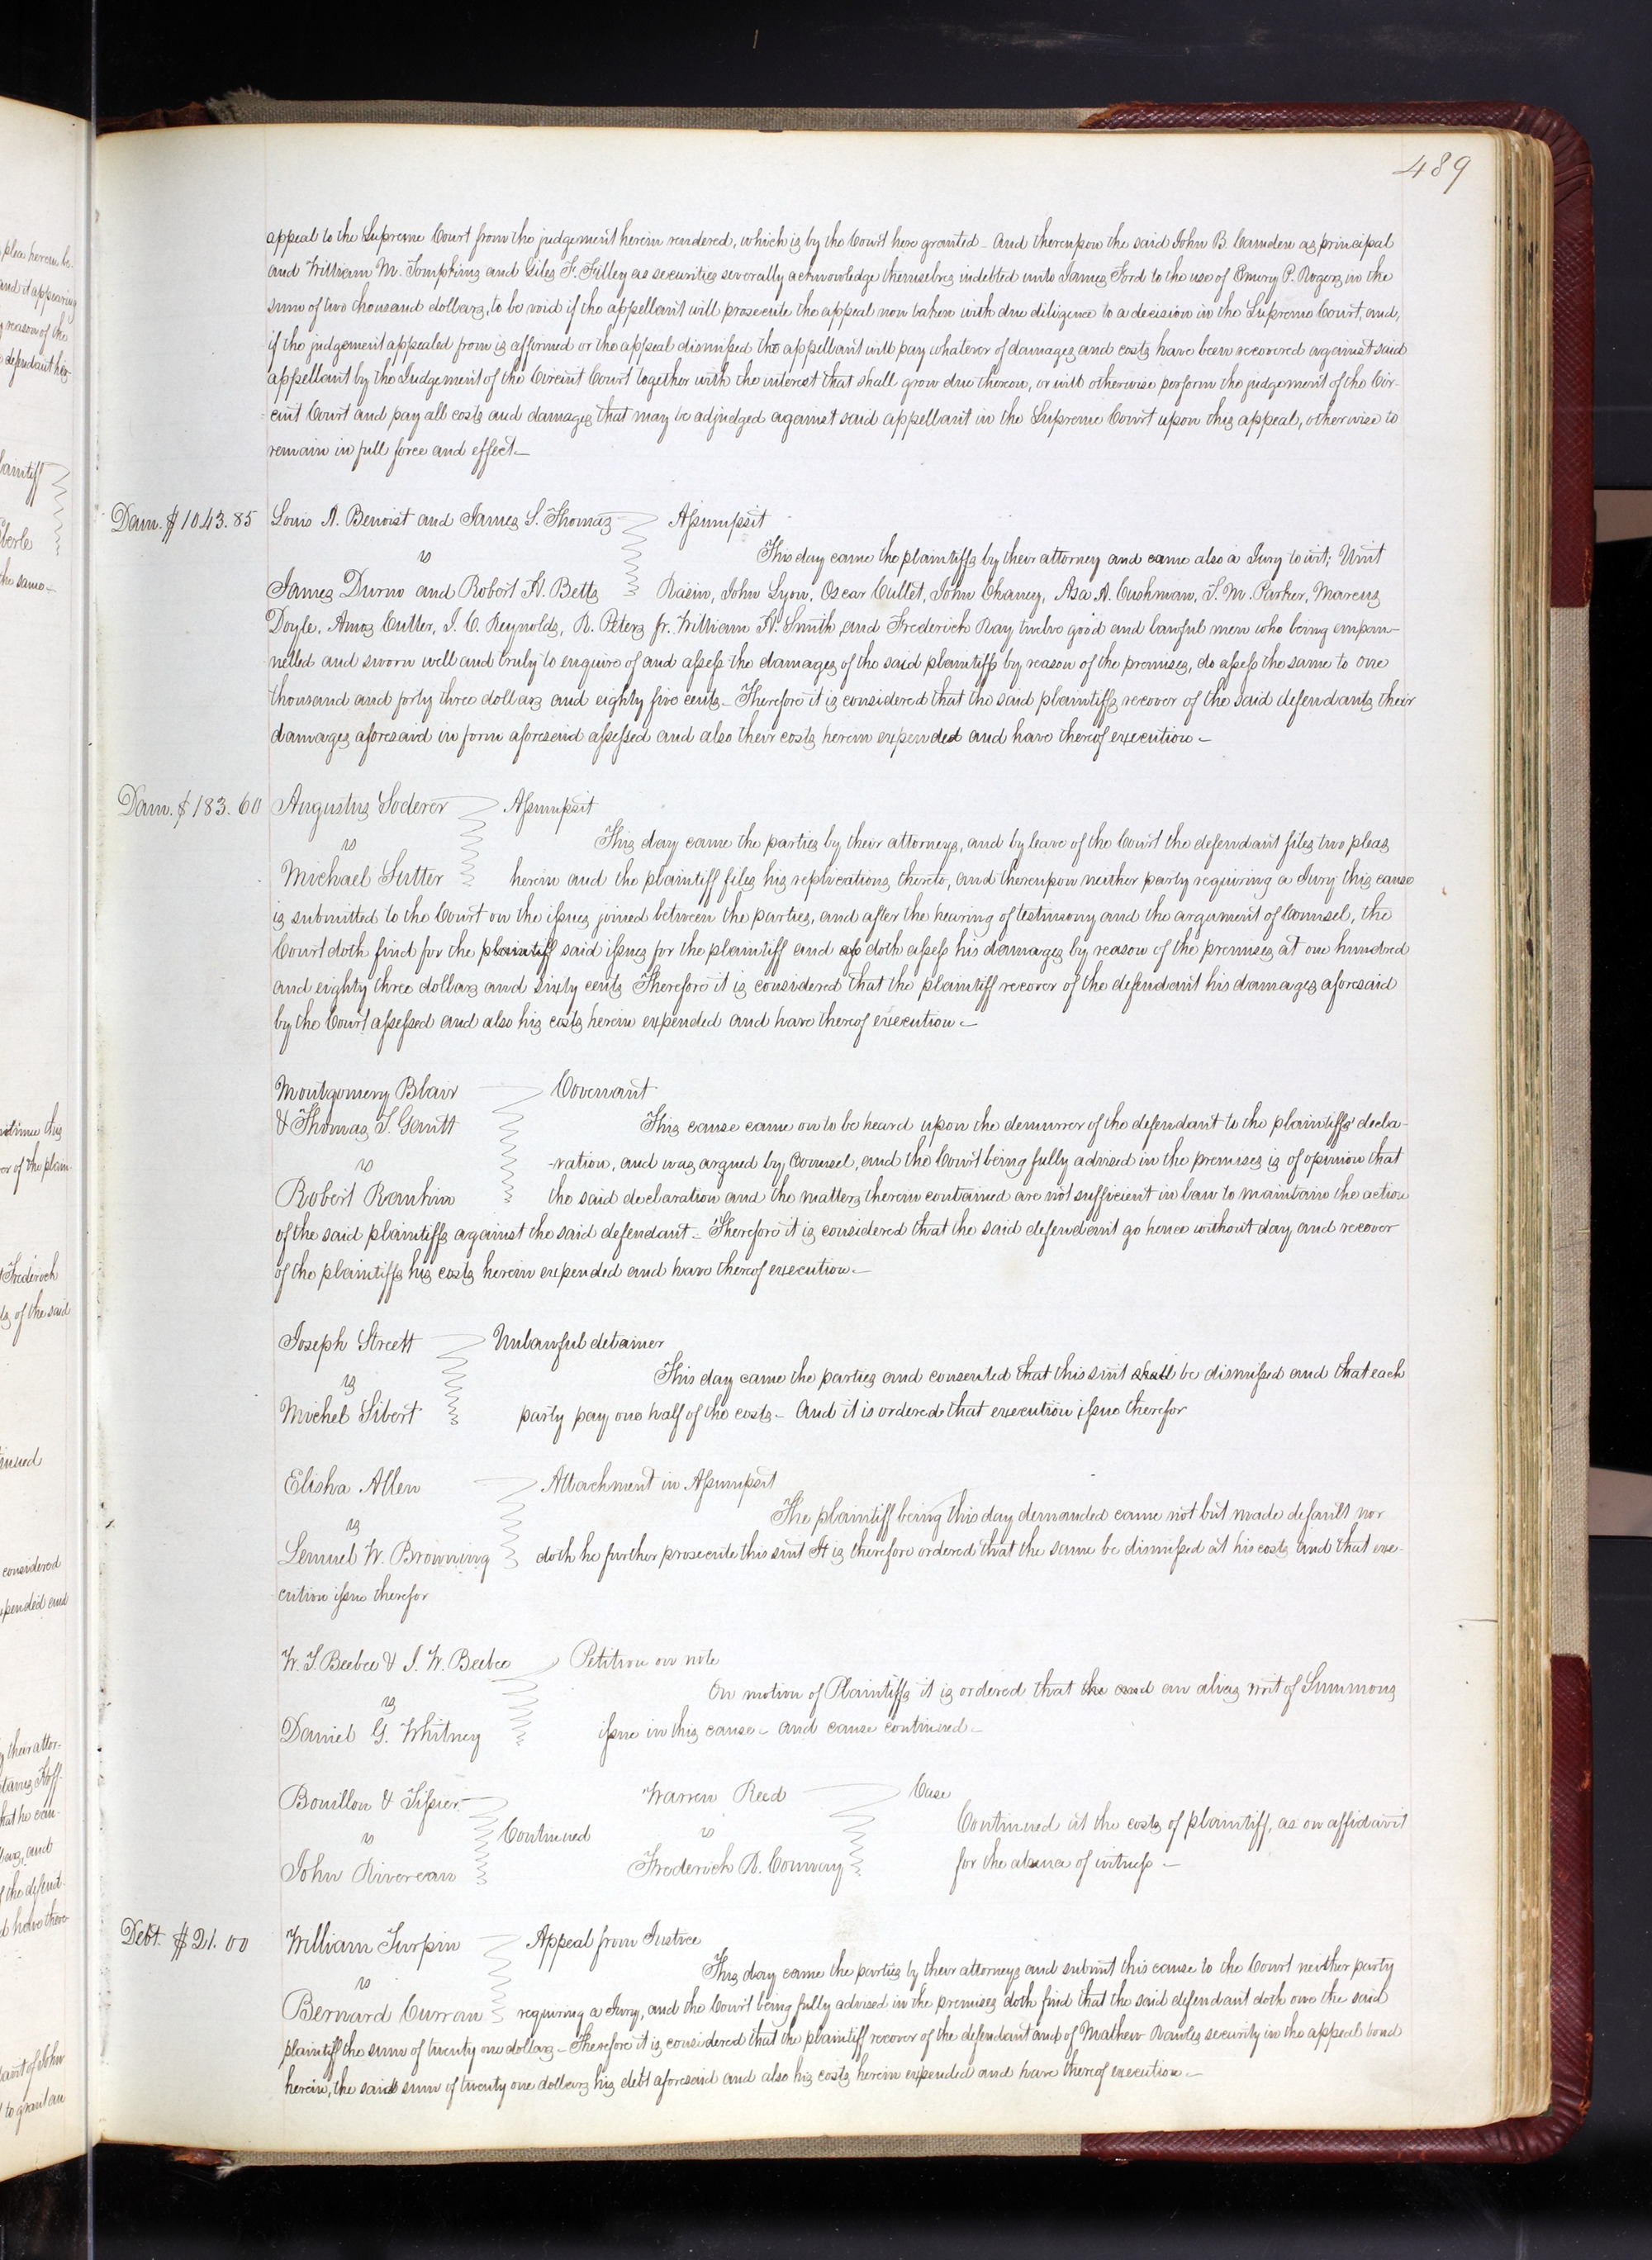 489
appeal to the Supreme Court from the judgement herein rendered, which is by the Court here granted – And thereupon the said John B. Camden as principal
and William M. Tompkins and Giles F. Filley as securities severally acknowledge themselves indebted unto James Ford to the use of Emery P. Rogers in the
sum of two thousand dollars, to be void if the appellant will prosecute the appeal now taken with due diligence to a decision in the Supreme Court, and,
if the judgement appealed from is affirmed or the appeal dismissed the appellant will pay whatever of damages and costs have been recovered against said
appellant by the Judgement of the Circuit Court together with the interest that shall grow due thereon, or will otherwise perform the judgement of the Cir-
cuit Court and pay all costs and damages that may be adjudged against said appellant in the Supreme Court upon this appeal, otherwise to
remain in full force and effect –
Dam. $1043.85 Louis A. Benoist and James S. Thomas Assumpsit
vs This day came the plaintiffs by their attorney and came also a Jury to wit;
James Durno and Robert H. Betts Rasin, John Lyon, Oscar Cullet, John Chaney, Asa A. Cushman, S. M. Parker, Marcus
Doyle, Amos Cutler, J. C. Reynolds, R. Peters Jr. William H. Smith and Frederick Ray twelve good and lawful men who being empan-
nelled and sworn well and truly to enquire of and assess the damages of the said plaintiffs by reason of the premises, do assess the same to one
thousand and forty three dollars and eighty five cents – Therefore it is considered that the said plaintiffs recover of the said defendants their
damages aforesaid in form aforesaid assessed and also their costs herein expended and have thereof execution –
Dam. $183.60 Augustus Loderer Assumpsit
vs This day came the parties by their attorneys, and by leave of the Court the defendant files two pleas
Michael Sutter herein and the plaintiff files his replications thereto, and thereupon neither party requiring a Jury this cause
is submitted to the Court on the issues joined between the parties, and after the hearing of testimony and the argument of Counsel, the
Court doth find for the plaintiff said issues for the plaintiff and ass doth assess his damages by reason of the premises at one hundred
and eighty three dollars and sixty cents Therefore it is considered that the plaintiff recover of the defendant his damages aforesaid
by the Court assessed and also his costs herein expended and have thereof execution –
Montgomery Blair Covenant
& Thomas T. Gantt This cause came on to be heard upon the demurrer of the defendant to the plaintiffs' decla-
vs -ration, and was argued by Counsel, and the Court being fully advised in the premises is of opinion that
Robert Rankin the said declaration and the matters therein contained are not sufficient in law to maintain the action
of the said plaintiffs against the said defendant – Therefore it is considered that the said defendant go hence without day and recover
of the plaintiffs his costs herein expended and have thereof execution –
Joseph Strett Unlawful detainer
vs This day came the parties and consented that this suit shall be dismissed and that each
Michel Sibert party pay one half of the costs – And it is ordered that execution issue therefor
Elisha Allen Attachment in Assumpsit
vs The plaintiff being this day demanded came not but made default nor
Lemuel W. Browning doth he further prosecute this suit It is therefore ordered that the same be dismissed at his costs and that exe-
cution issue therefor
W. S. Beebee & J. W. Beebee Petition on note
vs On motion of Plaintiffs it is ordered that the and an alias writ of Summons
Daniel G. Whitney issue in this cause – and cause continued –
Bouillon & Tissier Warren Reed Case
vs Continued vs Continued at the costs of plaintiff, as on affidavit
John Rivercan Frederick R. Conway for the absence of witness –
Debt $21.00 William Turpin Appeal from Justice
vs This day came the parties by their attorneys and submit this cause to the Court neither party
Bernard Curran requiring a Jury, and the Court being fully advised in the premises doth find that the said defendant doth owe the said
plaintiff the sum of twenty one dollars – Therefore it is considered that the plaintiff recover of the defendant and of Mathew Rawles security in the appeal bond
herein, the said sum of twenty one dollars his debt aforesaid and also his costs herein expended and have thereof execution –